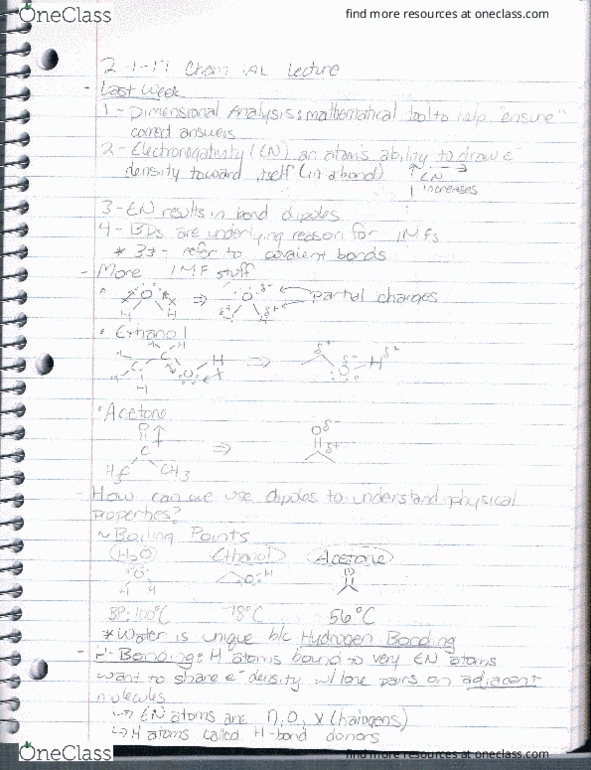 OneClass
find more resources at oneclass.com
2-1-17 Chem 1AL Lecture
- Last Week
1 - Dimensional Analysis: mathematical tool to help "ensure"
correct answers
2 - Electronegativity (EN) an atom's ability to draw e-
density toward itself (in a bond) ↑ EN →
increases
3 - EN results in bond dipoles
4 - BDs are underlying reason for IMFs
* 3 - refer to covalent bonds
- More IMF stuff
O ⇒ O δ- partial charges
H H δ+ δ+
• Ethanol
H H
C C H ⇒ δ+ δ- H δ+
H O O
H
• Acetone
O ↑ O δ-
C ⇒ δ+
H3C CH3
- How can we use dipoles to understand physical
properties?
~ Boiling Points
(H2O) (Ethanol) (Acetone)
O O-H O
H H
BP: 100°C 78°C 56°C
* Water is unique b/c Hydrogen Bonding
- H-Bonding: H atom is bound to very EN atoms
want to share e- density w/ lone pairs on adjacent
molecules
↳ EN atoms are N, O, X (halogens)
↳ H atoms called H-bond donors
OneClass
find more resources at oneclass.com